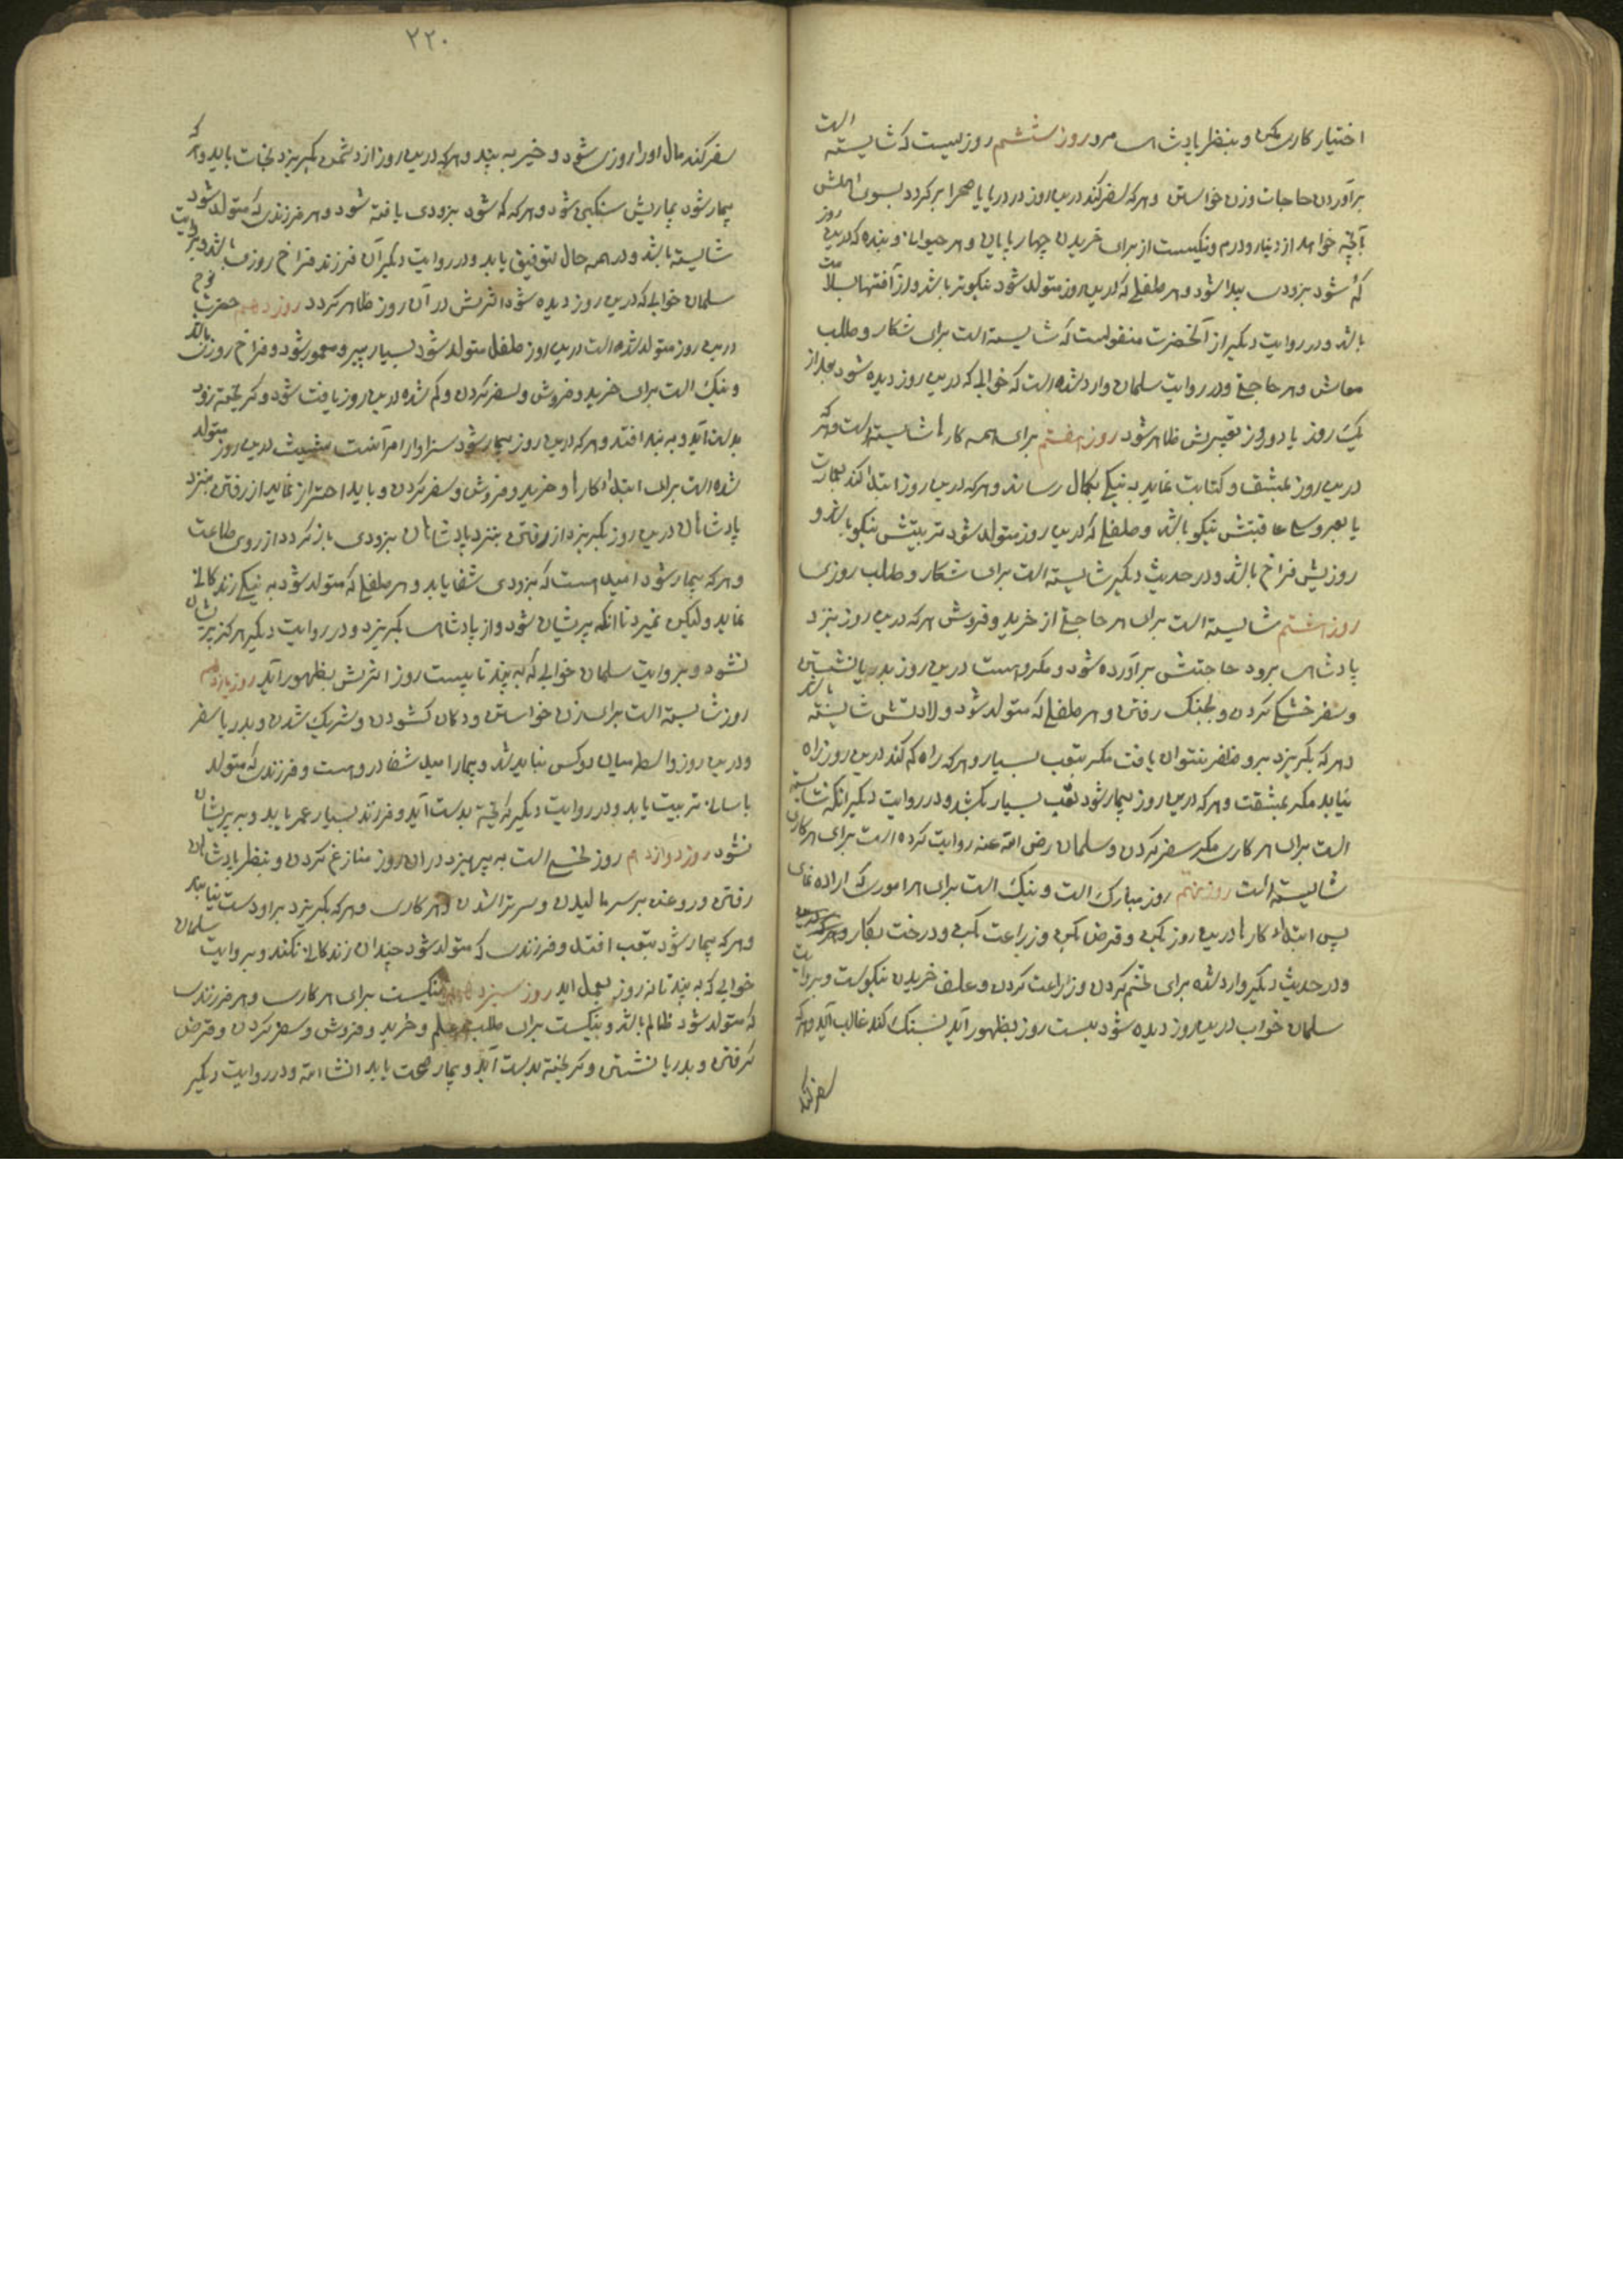 اختیار کاری مکن و بنظر پادشاه مرو روز ششم روزیست که شایسته است
برآوردن حاجات وزن خواستن و هرکه سفر کند درین روز در دریا یا صحرا برگردد بسوی اهلش
بآنچه خواهد از دینار و درم و نیکیست از برای خریدن چهارپایان و هر حیوان و بنده که درین روز
گم شود بزودی پیدا شود و هر طفلی که درین روز متولد شود نیکوتر باشد و از آفتها بسلامت
باشد و در روایت دیگر از آنحضرت منقولست که شایسته است برای شکار و طلب
معاش و هر حاجتی و در روایت سلمان وارد شده است که خوابی که درین روز دیده شود بعد از
یک روز یا دو روز تعبیرش ظاهر شود روز هفتم برای همه کارها شایسته است و هرکه
درین روز بمشق و کتابت نماید به نیکی بکمال رساند و هرکه درین روز ابتدا کند بعمارت
یا بعروسی عاقبتش نیکو باشد و طفلی که درین روز متولد شود تربیتش نیکو باشد و
روزیش فراخ باشد و در حدیث دیگر شایسته است برای شکار و طلب روزی
روز هشتم شایسته است برای هر حاجتی از خرید و فروش هرکه درین روز بنزد
پادشاه برود حاجتش برآورده شود و مکروهست درین روز بدریا نشستن
و سفر خشکی کردن و بجنگ رفتن و هر طفلی که متولد شود ولادتش شایسته باشد
و هرکه بگریزد برو ظفر نتوان یافت مگر بتعب بسیار و هرکه راه گم کند درین روز راه
نیابد مگر بمشقت و هرکه درین روز بیمار شود تعب بسیار بکشد و در روایت دیگر آنکه شایسته
است برای هر کاری مگر سفر کردن و سلمان رضی الله عنه روایت کرده است برای هر کاری
شایسته است روز نهم روز مبارک است و نیک است برای هر امور که اراده نمای
پس ابتداء کارها درین روز بکن و قرض بکن و زراعت بکن و درخت بکار
و در حدیث دیگر وارد شده برای تخم کردن و زراعت کردن و علف خریدن نیکوست و بروایت
سلمان خواب درین روز دیده شود بیست روز بظهور آید بجنگ کند غالب آید و هرکه
سفر کند
۲۲۰
سفر کند مال او را روزی شود و خیر به بیند و هرکه درین روز از دشمن بگریزد نجات یابد و هرکه
بیمار شود بماریش سنگین شود و هرکه گم شود بزودی یافته شود و هر فرزندی که متولد شود
شایسته باشد و در همه حال توفیق یابد و در روایت دیگر آن فرزند فراخ روزی باشد و بروایت
سلمان خوابی که درین روز دیده شود اثرش در آن روز ظاهر گردد روز دهم حضرت نوح
درین روز متولد شده است درین روز طفل متولد شود بسیار پیر و معمور شود و فراخ روزی باشد
و نیک است برای خرید و فروش و سفر کردن و گم شده درین روز یافت شود و گریخته زود
بدست آید و به بند افتد و هرکه درین روز بیمار شود سزاوار امر آنست شیث درین روز متولد
شده است برای ابتداء کارها و خرید و فروش و سفر کردن و باید احتراز نماید از رفتن بنزد
پادشاهان درین روز بگریزد از رفتن بنزد پادشاهان بزودی بازگردد از روی طاعت
و هرکه بیمار شود امید هست که بزودی شفا یابد و هر طفلی که متولد شود به نیکی زندگانی
نماید ولیکن نمیرد تا آنکه پریشان شود و از پادشاه بگریزد و در روایت دیگر هرگز پریشان
نشود و بروایت سلمان خوابی که به بیند تا بیست روز اثرش بظهور آید روز یازدهم
روز شایسته است برای زن خواستن و دکان گشودن و شریک شدن و بدریا سفر
و درین روز واسطه میان دو کس نباید شد و بیمار امید شفا دروهست و فرزندی که متولد
باسانی تربیت یابد و در روایت دیگر گریخته بدست آید و فرزند بسیار عمر یابد و پریشان
نشود روز دوازدهم روز نحس است به پرهیزد در آن روز منازعه کردن و بنظر پادشاهان
رفتن و روغن بر سر مالیدن و سر تراشیدن و هر کاری و هرکه بگریزد بر او دست نیابند
و هرکه بیمار شود بتعب افتد و فرزندی که متولد شود چندان زندگانی نکند و بروایت سلمان
خوابی که به بیند تا نه روز بعمل آید روز سیزدهم نیکیست برای هر کاری و هر فرزندی
که متولد شود ظالم باشد و نیکست برای طلب علم و خرید و فروش و سفر کردن و قرض
گرفتن و بدریا نشستن و گریخته بدست آید و بیمار صحت یابد انشاءالله و در روایت دیگر